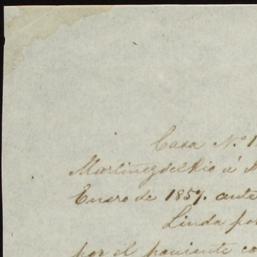 Casa N.º 1
Martinez del Rio á
Enero de 1857. ante
Linda por
por el poniente co